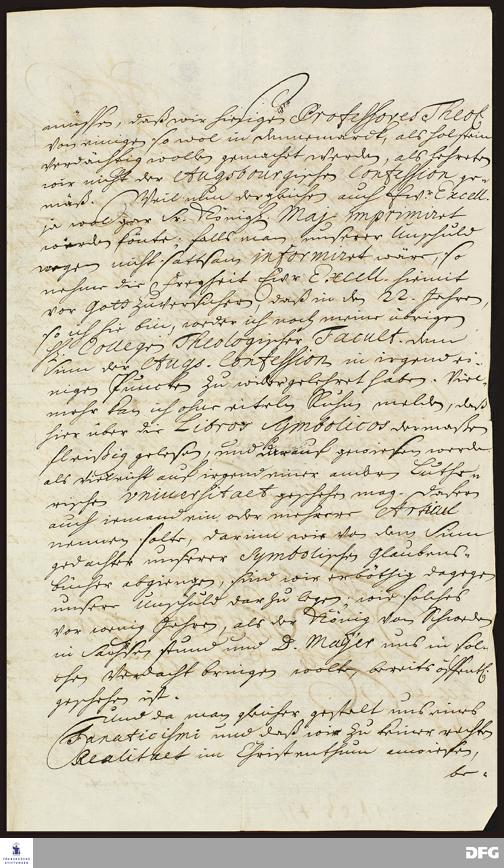 müssen, daß wir hiesige Professores Theol.
von einigen so wol in Dennemarck, als Holstein
verdächtig wollen gemachet werden, als lehreten
wir nicht der Augsbourgischen Confession ge-
mäß. Weil nun dergleichen auch Ewr Excell.
ja wol gar Sr. Königl. Maj. imprimiret
werden könte, falls man unserer Unschuld
wegen nicht sattsam informiret wäre; so
nehme die Freyheit Ewr Excell. hiemit
vor Gott zu versichern, daß in den 22. Jahren,
so ich hie bin, weder ich noch meine übrigen
Hr. Collegen Theologischer Facult. dem
Sinn der Augs. Confession in irgend ei-
nigen Puncten zu wieder gelehret haben. Viel-
mehr kan ich ohne eiteln Ruhm melden, daß
hier über die Libros Symbolicos dermaßen
fleißig gelesen, und darauf gewiesen werde
als vielleicht auf irgend einer andern Luthe-
rischen Universitaet geschehen mag. Dafern
auch iemand ein oder mehrere Articul
nennen solte, darinn wir von dem Sinn
gedachter unserer Symbolischen Glaubens-
bücher abgiengen, sind wir erböthig dagegen
unsere Unschuld darzulegen, wie solches
vor wenig Jahren, als der König von Schweden
in Sachsen stund und D. Mayer uns in sol-
chen Verdacht bringen wolte, bereits öffentl.
geschehen ist.
Und da man gleicher gestalt uns eines
Fanaticismi und daß wir zu keiner rechten
Realitaet im Christenthum anwiesen,
be-
FRANCKESCHE STIFTUNGEN
DFG